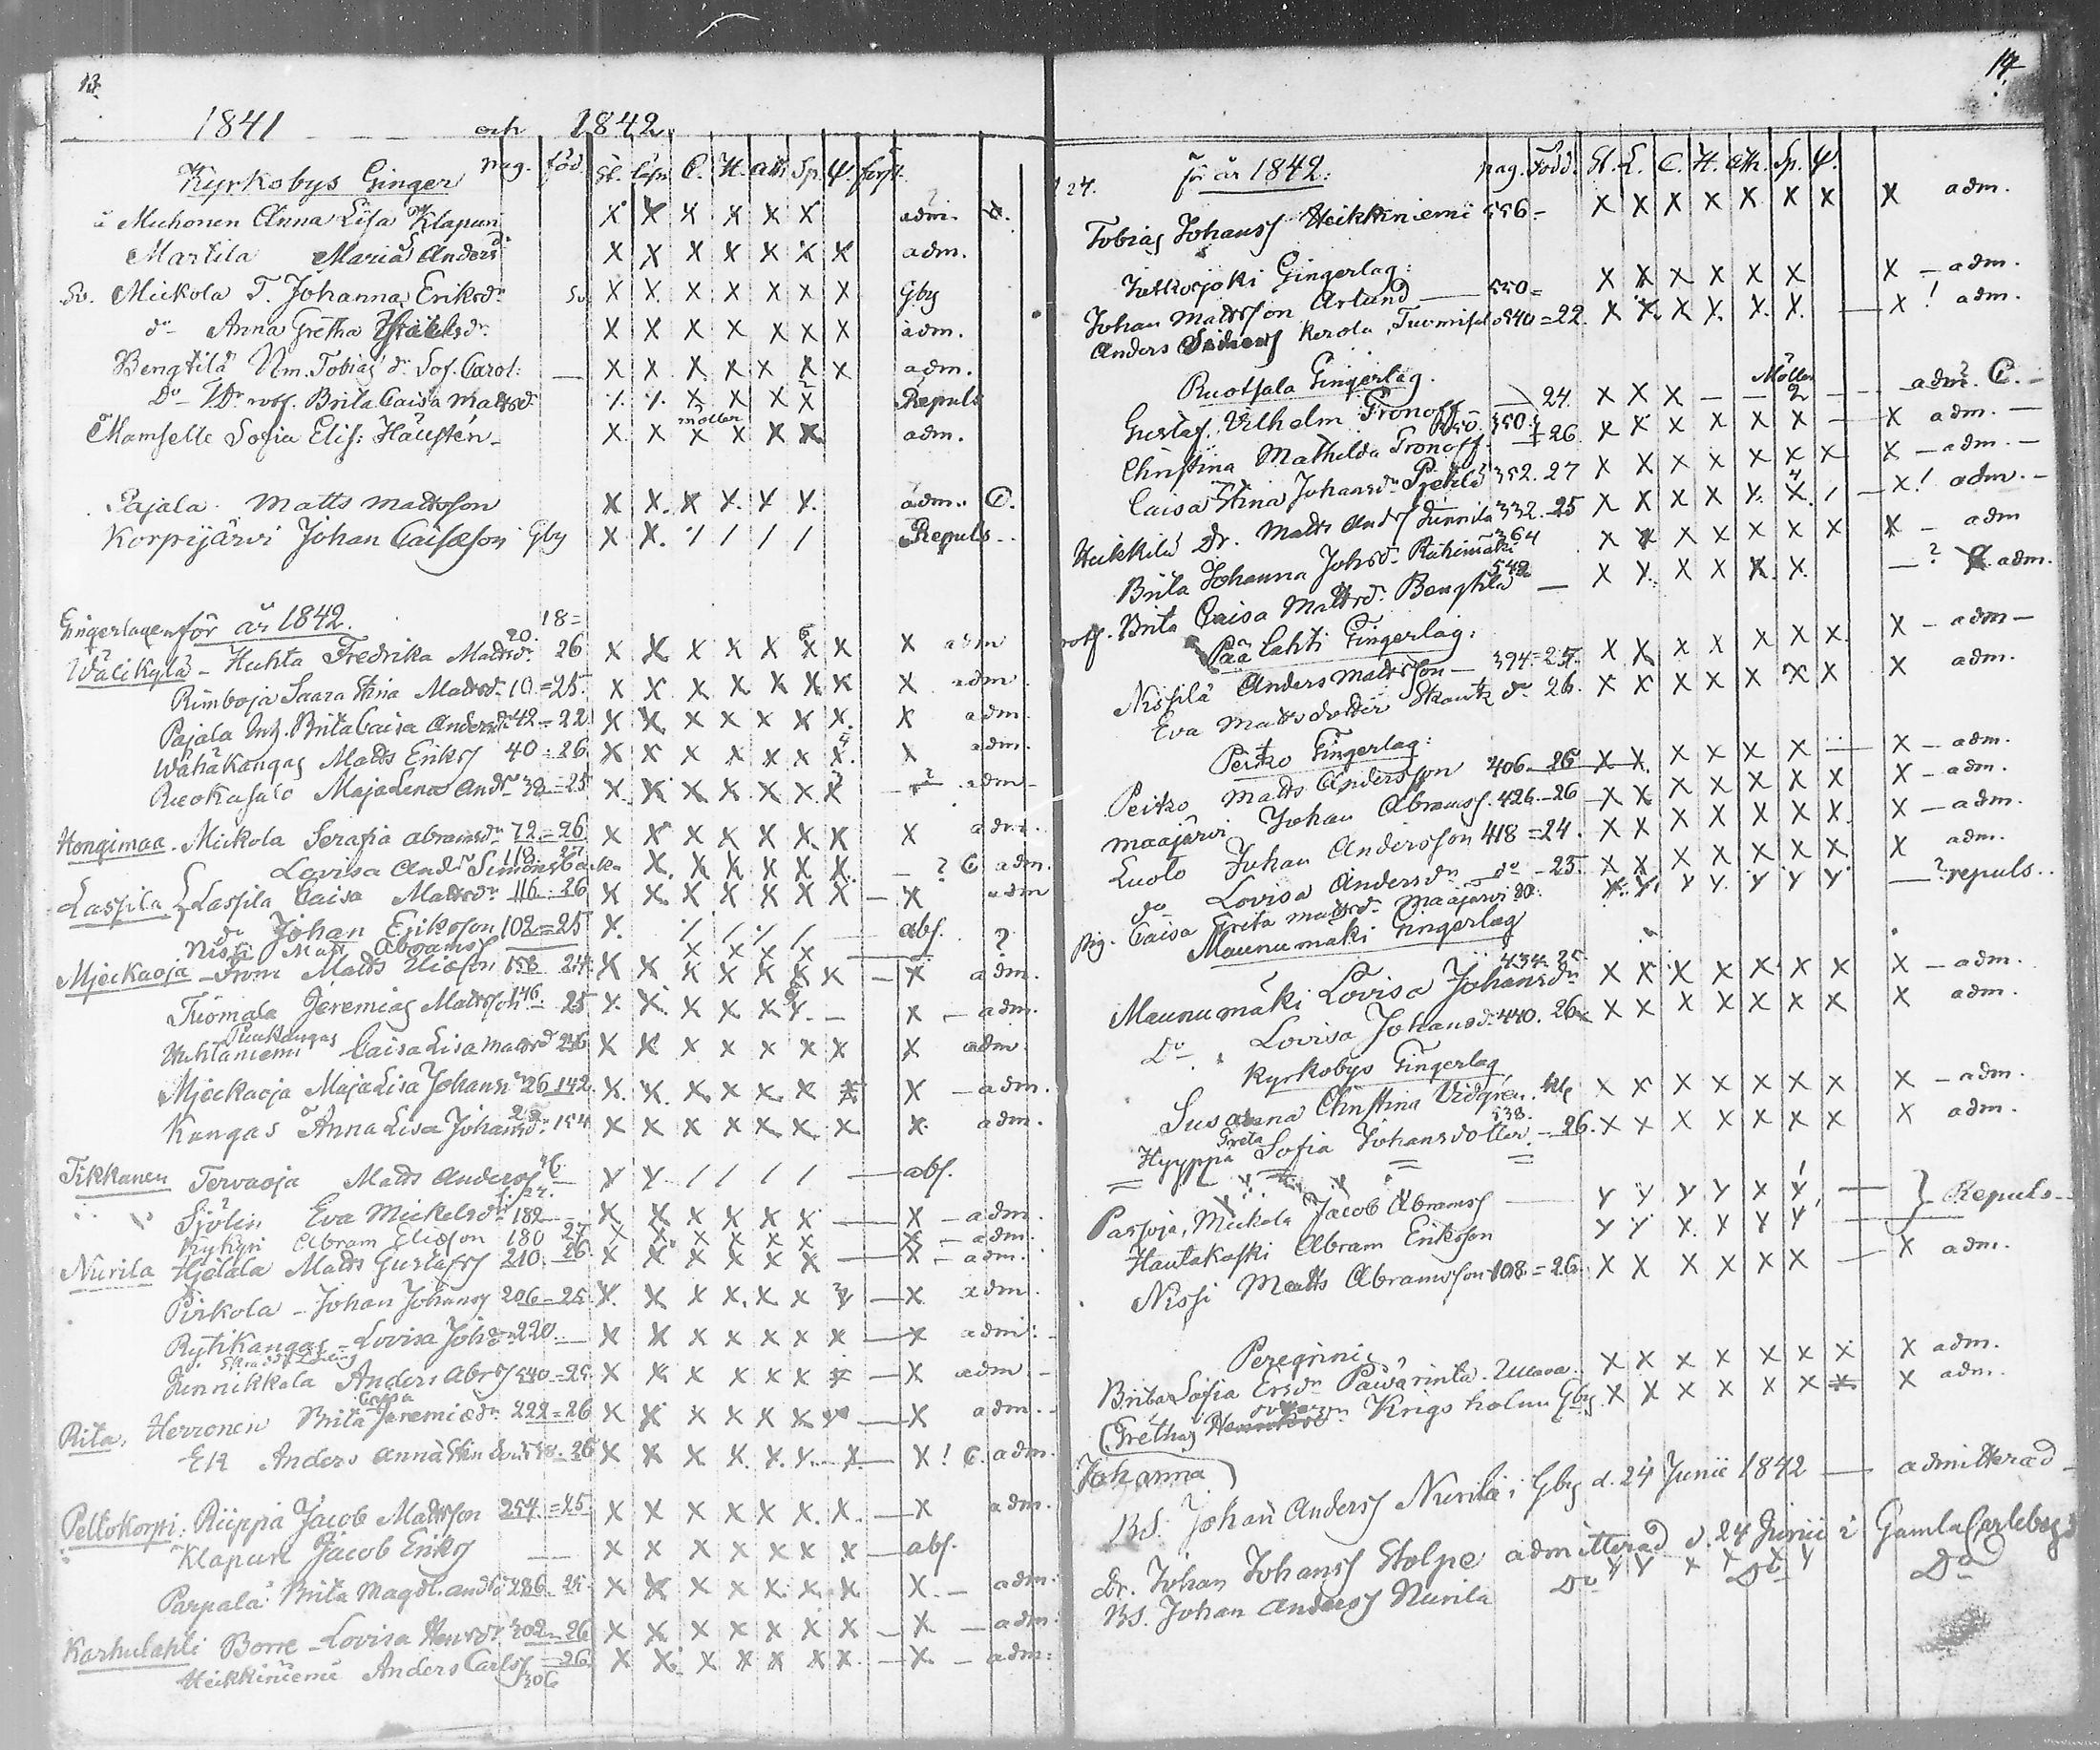 13.
1841 och 1842.
Kyrkobys Ginger pag. föd. St. Läsn C. H. ath. Sp. Ψ. förs.
Muhonen Anna Lisa Klapuri X X X X X X adm.
Martila Maria Anders d. X X X X X X X adm.
Sv. Mickola T. Johanna Eriksdr Sv. X X X X X X X Gby
do Anna Gretha X X X X X X X adm.
Bengtilä Nm. Tobias dr Sof. Carol: — X X X X X X X adm.
Do Brita Caisa Mattsdr Repuls
Mamselle Sofia Elis: Häggstén X X X X X X adm.
Pajala Matts Mattsson X X. X X. X X. adm. C.
Korpijärvi Johan Caisæson Gby X X. / / / / Repuls
Gingerlagen för år 1842. 18=
Wälikylä - Huhta Fredrika Mattsdr 20. 26 X X X X X X X X adm
Rimboja Saara Stina Mattsdr 10 = 25. X X X X X X X X adm
Pajala Brita Caisa Andersdr 42 = 22 X X X X X X X. X adm.
Wähäkangas Matts Eriks 40 = 26 X X X X X X X. X adm.
Ruokasalo Maja Lena Andr 38 = 25 X X X X X X X ? adm
Hongimaa. Mickola Serafia Abramsdr 72 = 26 X X X X X X X X adm.
Lovisa Andr Simonsbacka 118 27 X. X X X X X. — ? C adm.
Lassila Lassila Caisa Mattsdr 116 - 26 X X X X X X X — X adm
do Johan Eriksson 102 = 25 X. / / / / abs. ?
Nissi Matt Abramss X X X X
Mjeckaoja From Matts Eliæson 158 24 X X X X X X X — X adm.
Tuomala Jeremias Mattsson 146. 25 X. X. X X X X. — X - adm.
Puukangas
Huhtaniemi Caisa Lisa Mattsd 26 X X X X X X X X adm.
Mjeckaoja Maja Lisa Johans 26 142. X. X. X X X. X X X — adm.
Kangas Anna Lisa Johansdr 154 X X X X X X X X. adm.
Tikkanen Tervaoja Matts Anderss X X. / / / / — abs.
Sjölin Eva Mickelsdr 182 X X X X X X. — X - adm.
Kykyri Abram Eliæson 180 27 X X. X X X X X - adm.
Nurila Hjelala Matts Gustafs 210. 26 X X X X X X — X - adm.
Pirkola - Johan Johans 206 = 25 X. X X X. X X X — X adm.
Rytikangas - Lovisa Johdr 220 — X X X X X X X — X adm.
Junnikkala Anders Abrs 540 = 25 X X X X X X X — X adm
Rita. Herronen Brita Jeremiædr 222 = 26 X X X X X X X — X adm.
Ek Anders Anna Stin 26 X X X X. X. X. X. — X! C. adm.
Peltokorpi. Riippa Jacob Mattsson 254. = 25 X X X X X. X. X. — X adm.
Klapuri Jacob Eriks — X X X X X X X — abs.
Parpala Brita Magdl. Andsd 286 - 25. X X X X X. X. X X. — adm.
Karhulahti Borre - Lovisa Henrsdr 302 - 26 X X X X X X. X — X — adm.
Heikkiniemi Anders Carls 26. X X. X X X X X. — X. — adm.
306
14.
24. för år 1842. pag. Född. St. L. C. H. Ath. Sp. Ψ.
Tobias Johanss Heikkiniemi 556 — X X X X X X X X adm.
Jätkojoki Gingerlag:
Johan Mattsson Åslund 550 = X X X X X X X — adm.
Anders Kerola, Tuomisal 540 = 22. X X. X X. X. X. — X! adm.
Ruotsala Gingerlag. Möller
Gustaf Vilhelm Tronoff 24. X X X — — 2 — adm. C. —
Christina Mathilda Tronoff 350. 26. X X X X X X — X adm. —
Caisa Stina Johansdr 352. 27 X X X X X X X X — adm. —
Heikkilä Dr. Matts Ands Junnila 332. 25 X X X X X. X. / — X! adm. —
Brita Johanna Johsdr Rähimäki 364 X X X X X X X X — adm
Brita Caisa Mattsdr Bengtilä 542 — X X. X X X. X. — ? C. adm.
Pää Lahti Gingerlag:
Nissilä Anders Mattsson — 394. = 25. X X. X X X X X. X — adm —
Eva Mattsdotter Skantz do 26. X X X X X X X X adm.
Peitzo Gingerlag:
Peitzo Matts Andersson 406 - 26 X X. X X X X — X — adm.
Maajärvi Johan Abramss. 426. - 26 X X X X X X X X — adm.
Luoto Johan Andersson 418 = 24. X X X X X X X. X — adm.
do Lovisa Andersdr do - 25. X X X X X X X. X adm.
Pig. Caisa Greta Mattsdr Maajärvi 20. X X X X. X X X — ? repuls..
Maunumäki Gingerlag
434. 25
Maunumäki Lovisa Johansdr X X X X X. X X X — adm.
Do Lovisa Johansd. 440. 26 X X X X X X X X adm.
Kyrkobys Gingerlag
Susanna Christina Vidgren. X X X X X X X X — adm.
Hyyppä Greta Sofia Johansdotter 538. - 26. X X X X X X X X adm.
Passoja, Mickola Jacob Abramss — X X X X X X — } Repuls
Hautakoski Abram Eriksson X X X. X X X —
Nissi Matts Abramsson 108 = 26. X X X X X X — X adm.
Peregrini
Brita Sofia Ersdr Päivärinta. Ullava. X X X X X X X X adm.
(Gretha) Krigsholm Gby. X X X X X X X X adm.
Johanna)
BS. Johan Anderss Nurila i Gby d. 24 Junii 1842 — admitterad
Dr. Johan Johanss Stolpe admitterad d. 24 Junii i Gamla Carleby
BS. Johan Anderss Nurila Do Do Do